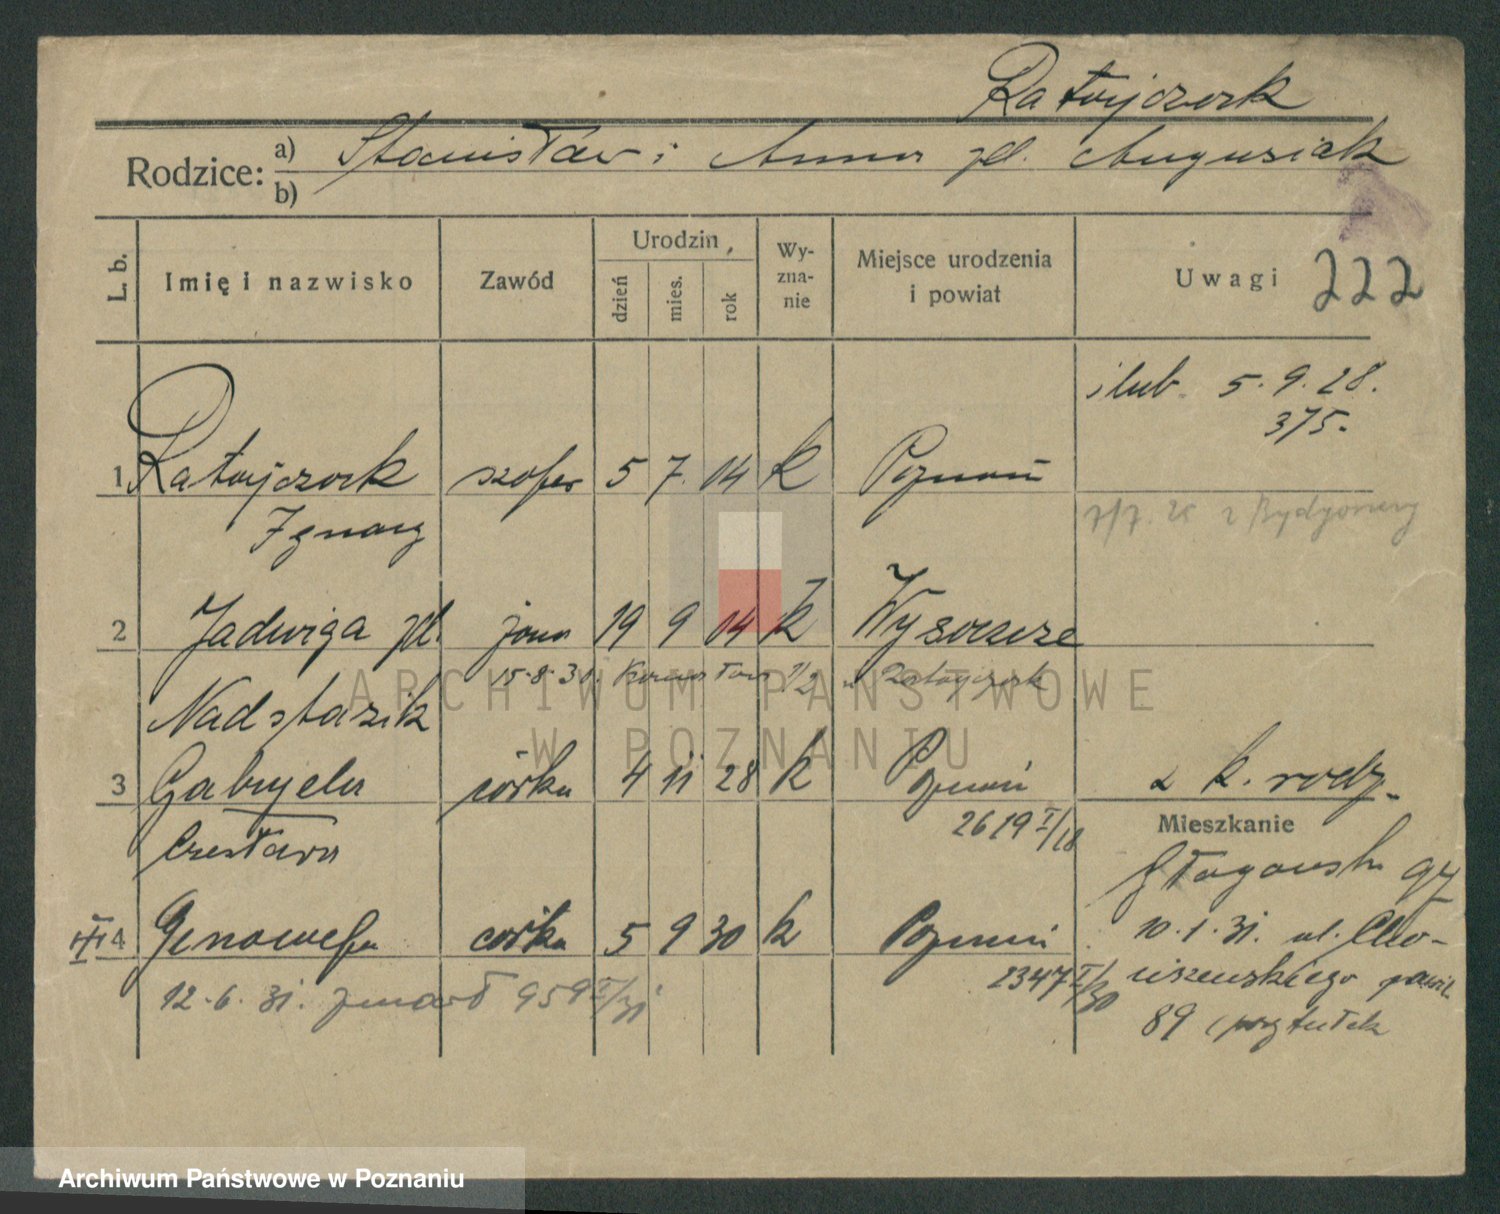 Ratajczak
Rodzice: a) Stanisław i Anna zd. Augusiak
b)
L. b. Imię i nazwisko Zawód Urodzin, dzień mies. rok Wyznanie Miejsce urodzenia i powiat Uwagi 222
ślub 5. 9. 28.
375.
1 Ratajczak szofer 5 7. 04 k Poznań
Ignacy
7/7. 25 z Bydgoszczy
2 Jadwiga zd. żona 19 9 04 k
15.8.30. 1/2 Ratajczak
Nadstazik
3 Gabryela córka 4 11 28 k Poznań z k. rodz.
2619 I/18
Czesława
Mieszkanie
Głogowska 97
4 Genowefa córka 5 9 30 k Poznań
10.1.31. ul.
2347 I/30
12. 6. 31. zmarł 959
89 (przytułek
ARCHIWUM PAŃSTWOWE
W POZNANIU
Archiwum Państwowe w Poznaniu